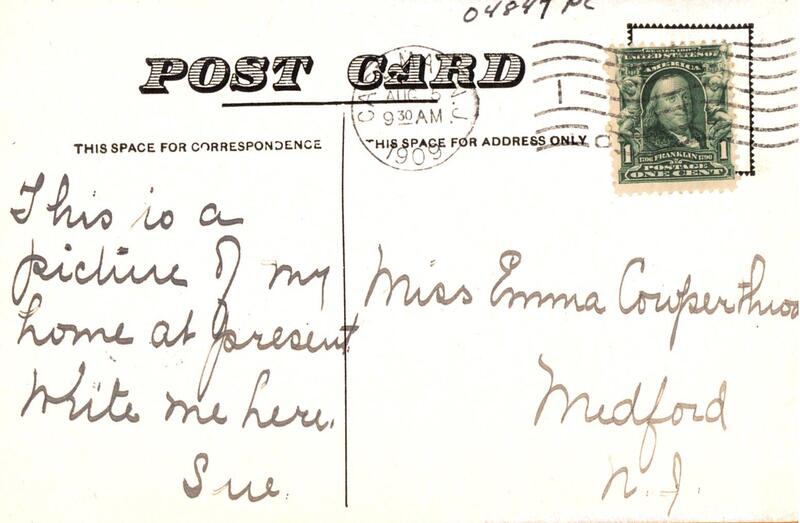 04847 PC
POST CARD
AUG 5
9 30 AM
1909
SERIES 1902
UNITED STATES OF
AMERICA
1
1706 FRANKLIN 1790
1
POSTAGE
ONE CENT
THIS SPACE FOR CORRESPONDENCE
THIS SPACE FOR ADDRESS ONLY
This is a
picture of my
home at present
Write me here.
Sue.
Miss Emma
Medford
N. J.